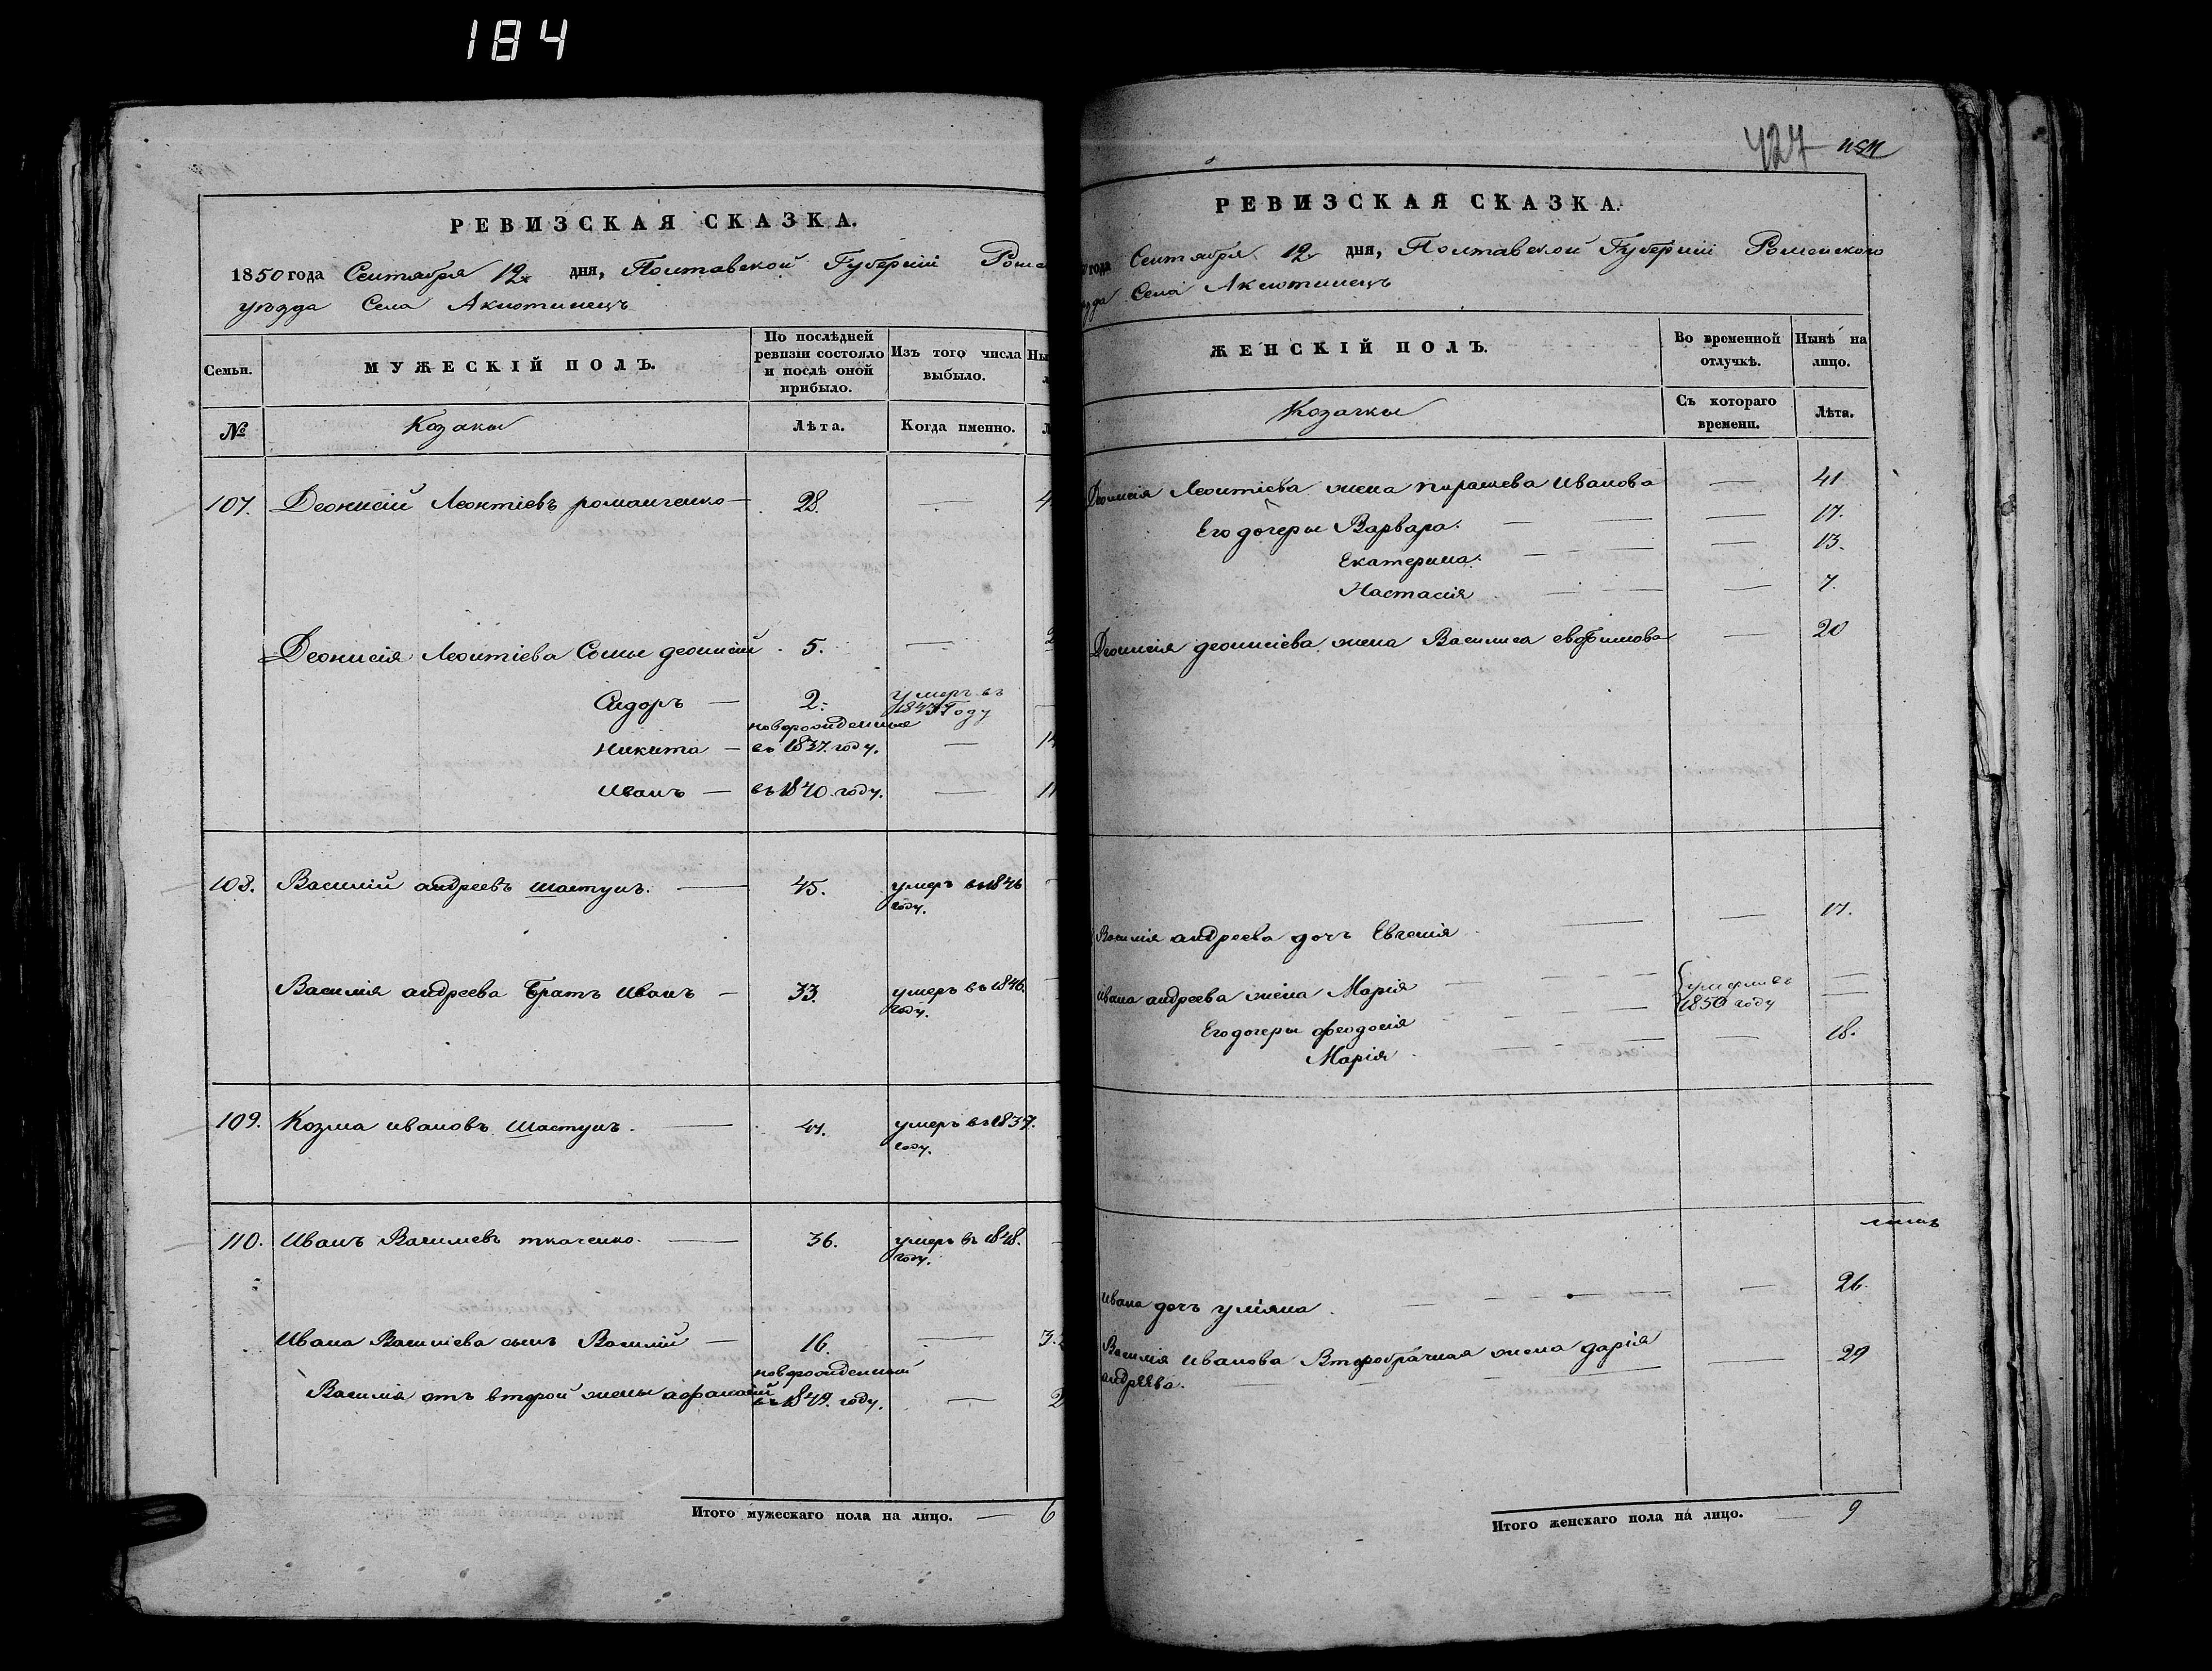 184
РЕВИЗСКАЯ СКАЗКА.
1850 года Сентября 12 дня, Полтавской Губерніи Роме
уѣзда Села Аксютинецъ
Семьи.
МУЖЕСКІЙ ПОЛЪ.
По послѣдней ревизіи состояло и послѣ оной прибыло.
Изъ того числа выбыло.
№
Козаки
Лѣта.
Когда именно.
107. Деонисій Леонтіевъ романченко — 28. — 4
Деонисія Леонтіева Сыны деонисій 5. — 2
Сидоръ — 2. умеръ въ
году
новорожденные
Никита — въ 1837. году. — 14
Иванъ — въ 1840. году. — 11
108. Василій андреевъ шастунъ. — 45. умеръ въ 1846
году.
Василія андреева братъ Иванъ — 33. умеръ въ 1846.
году.
109. Козма ивановъ Шастунъ. — умеръ въ 1837.
году.
110. Иванъ Василиевъ ткаченко. — 36. умеръ въ 1848.
году.
Ивана Василіева сынъ Василій — 16. — 3
новорожденный
Василія отъ второй жены афанасій въ 1849. году. — 2
Итого мужескаго пола на лицо. — 6
427
РЕВИЗСКАЯ СКАЗКА.
года Сентября 12 дня, Полтавской Губерніи Роменского
Села Аксютинецъ
ЖЕНСКІЙ ПОЛЪ.
Во временной отлучкѣ.
Нынѣ на лицо.
Козачки
Съ котораго времени.
Лѣта.
Деонисія Леонтіева жена Иванова — 41
Его дочеры Варвара. — 17.
Екатерина. — 13.
Настасія — 7.
Деонисія деонисіева жена Василиса евфимова — 20
Василія андреева дочь Евгенія — 17.
Ивана андреева жена Марія — умерли въ —
Его дочеры феодосія 1850 году —
Марія — 18.
Ивана дочь уліяна — 26.
Василія Иванова Второбрачная жена дарія — 29
андреева.
Итого женскаго пола на лицо. — 9